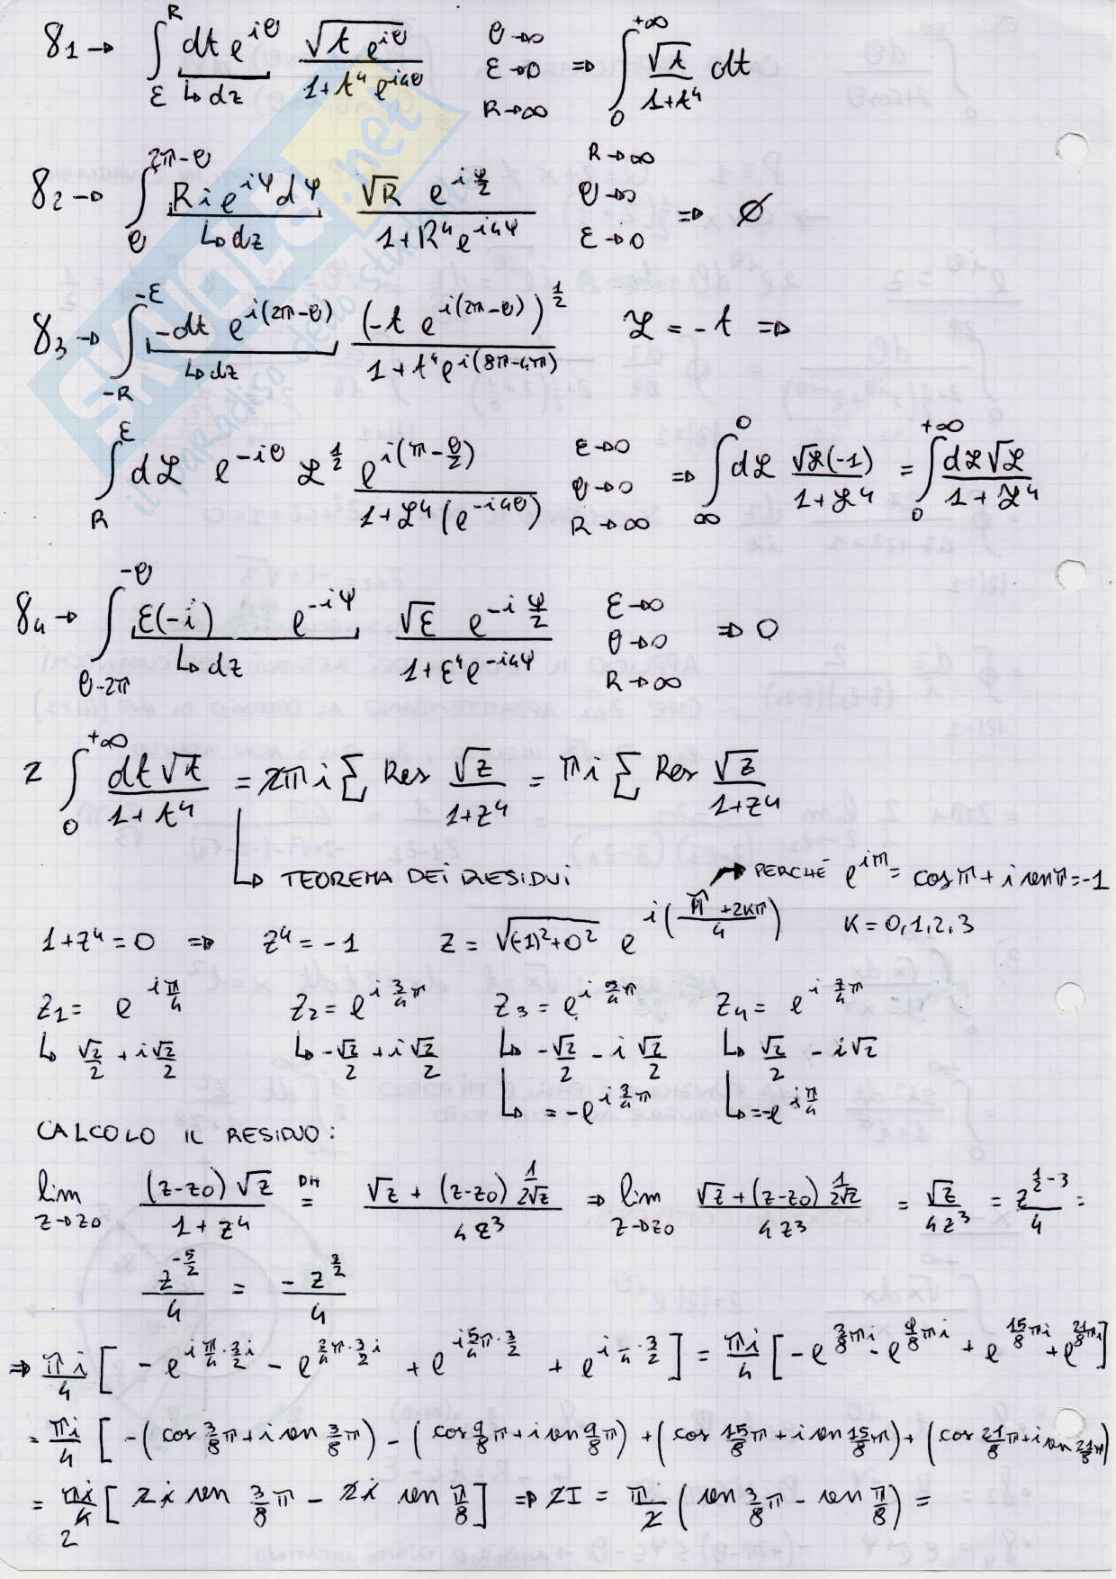 γ1 → ∫_ε^R dt e^{iθ} √(t e^{iθ}) / (1+t⁴ e^{i4θ}) θ→∞ ε→0 R→∞ ⇒ ∫_0^{+∞} √t / (1+t⁴) dt
↳ dz
γ2 → ∫_θ^{2π-θ} R i e^{iφ} dφ √R e^{iφ/2} / (1+R⁴ e^{i4φ}) R→∞ θ→∞ ε→0 ⇒ Ø
↳ dz
γ3 → ∫_{-R}^{-ε} -dt e^{i(2π-θ)} (-t e^{i(2π-θ)})^{1/2} / (1+t⁴ e^{i(8π-4π)}) 𝓛 = -t ⇒
↳ dz
∫_R^ε d𝓛 e^{-iθ} 𝓛^{1/2} e^{i(π-θ/2)} / (1+𝓛⁴(e^{-i4θ}) ε→0 θ→0 R→∞ ⇒ ∫_∞^0 d𝓛 √𝓛(-1) / (1+𝓛⁴) = ∫_0^{+∞} d𝓛√𝓛 / (1+𝓛⁴)
γ4 → ∫_{θ-2π}^{-θ} ε(-i) e^{-iφ} √ε e^{-iφ/2} / (1+ε⁴ e^{-i4φ}) ε→∞ θ→0 R→∞ ⇒ 0
↳ dz
2 ∫_0^{+∞} dt√t / (1+t⁴) = 2πi Σ Res √z / (1+z⁴) = πi Σ Res √z / (1+z⁴)
↳ TEOREMA DEI RESIDUI
→ PERCHÉ e^{iπ} = cosπ + i senπ = -1
1+z⁴=0 ⇒ z⁴=-1 z = √((-1)²+0²) e^{i(π+2kπ)/4} K=0,1,2,3
z1 = e^{iπ/4} z2 = e^{i3/4π} z3 = e^{i5/4π} z4 = e^{i7/4π}
↳ √2/2 + i√2/2 ↳ -√2/2 + i√2/2 ↳ -√2/2 - i√2/2 ↳ √2/2 - i√2
↳ = -e^{i3/4π} ↳ = -e^{iπ/4}
CALCOLO IL RESIDUO:
lim_{z→z0} (z-z0)√z / (1+z⁴) =^{DH} √z + (z-z0) 1/(2√z) / 4z³ ⇒ lim_{z→z0} √z + (z-z0) 1/(2√z) / 4z³ = √z / 4z³ = z^{1/2-3} / 4 =
z^{-5/2} / 4 = -z^{3/2} / 4
⇒ πi/4 [ -e^{iπ/4·3/2 i} - e^{3/4π·3/2 i} + e^{i5/4π·3/2} + e^{i /4·3/2} ] = πi/4 [ -e^{3/8πi} - e^{9/8πi} + e^{15/8πi} + e^{21/8πi} ]
= πi/4 [ -(cos 3/8π + i sen 3/8π) - (cos 9/8π + i sen 9/8π) + (cos 15/8π + i sen 15/8π) + (cos 21/8π + i sen 21/8π)
= πi/4 [ 2i sen 3/8π - 2i sen π/8 ] ⇒ 2I = π/2 (sen 3/8π - sen π/8) =
2
SKUOLA.net
il paradiso dello studente